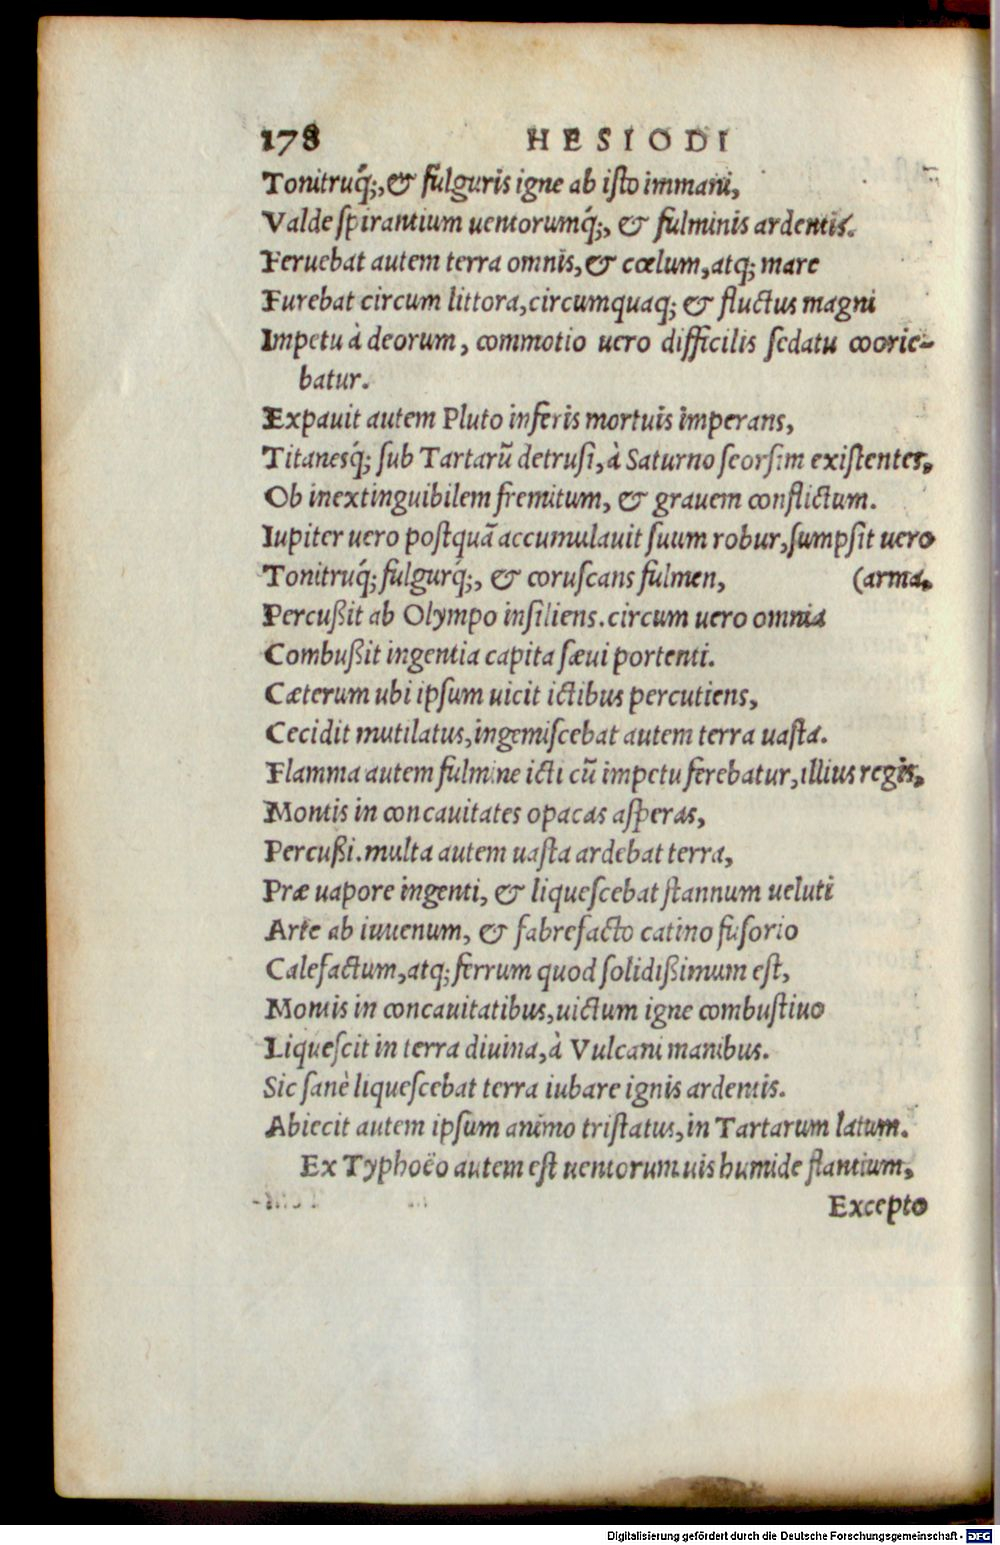 178 HESIODI
Tonitruq́;, & fulguris igne ab isto immani,
Valde spirantium uentorumq́;, & fulminis ardentis.
Feruebat autem terra omnis, & cœlum, atq; mare
Furebat circum littora, circumquaq; & fluctus magni
Impetu à deorum, commotio uero difficilis sedatu coorie-
batur.
Expauit autem Pluto inferis mortuis imperans,
Titanesq́; sub Tartarũ detrusi, à Saturno seorsim existentes,
Ob inextinguibilem fremitum, & grauem conflictum.
Iupiter uero postquã accumulauit suum robur, sumpsit uero
Tonitruq́; fulgurq́;, & coruscans fulmen, (arma,
Percußit ab Olympo insiliens. circum uero omnia
Combußit ingentia capita sæui portenti.
Cæterum ubi ipsum uicit ictibus percutiens,
Cecidit mutilatus, ingemiscebat autem terra uasta.
Flamma autem fulmine icti cũ impetu ferebatur, illius regis,
Montis in concauitates opacas asperas,
Percußi. multa autem uasta ardebat terra,
Præ uapore ingenti, & liquescebat stannum ueluti
Arte ab iuuenum, & fabrefacto catino fusorio
Calefactum, atq; ferrum quod solidißimum est,
Montis in concauitatibus, uictum igne combustiuo
Liquescit in terra diuina, à Vulcani manibus.
Sic sanè liquescebat terra iubare ignis ardentis.
Abiecit autem ipsum animo tristatus, in Tartarum latum.
Ex Typhoëo autem est uentorum uis humide flantium,
Excepto
Digitalisierung gefördert durch die Deutsche Forschungsgemeinschaft - DFG